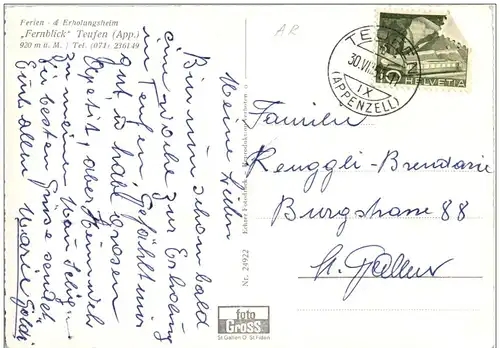 Ferien- & Erholungsheim
„Fernblick" Teufen (App.)
920 m ü. M. | Tel. (071) 236149
AR
TEUFEN
30.VII.
IX
(APPENZELL)
10 HELVETIA
Meine Lieben
Bin nun schon bald
eine Woche zur Erholung
in Teufen. Gefällt mir
gut, u habe grosen
Apetit, aber Heimweh
zu meinen
die besten Grüsse sendet
Euch allen Marie
Echter Fotodruck
Nr. 24922
foto
Gross
St.Gallen O St.Fiden
Familien
Renggli-Brendarie
Burgstrasse 88
St. Gallen